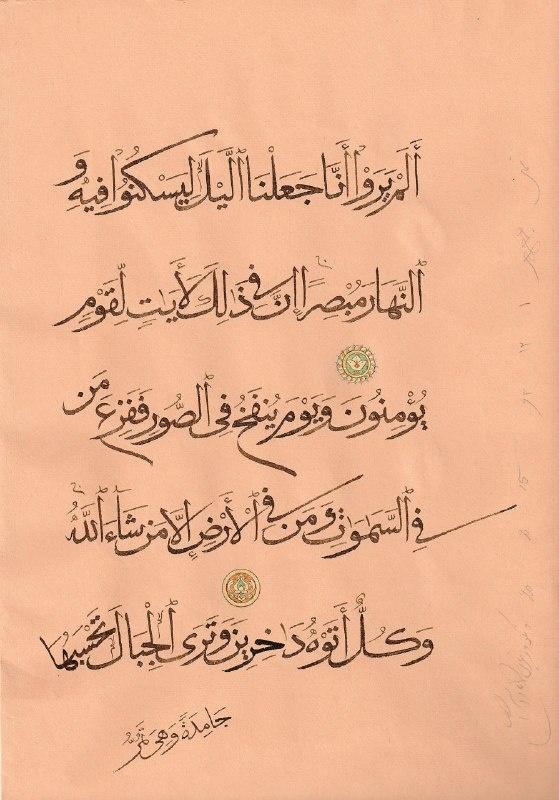 أَلَمْ يَرَوْا أَنَّا جَعَلْنَا ٱلَّيْلَ لِيَسْكُنُوا فِيهِ وَ
ٱلنَّهَارَ مُبْصِرًا إِنَّ فِي ذَٰلِكَ لَأَيَاتٍ لِّقَوْمٍ
يُؤْمِنُونَ وَيَوْمَ يُنفَخُ فِي ٱلصُّورِ فَفَزِعَ مَن
فِي ٱلسَّمٰوَاتِ وَمَن فِي ٱلْأَرْضِ إِلَّا مَن شَاءَ ٱللَّهُ
وَكُلٌّ أَتَوْهُ دَاخِرِينَ وَتَرَى ٱلْجِبَالَ تَحْسَبُهَا
جَامِدَةً وَهِيَ تَمُرُّ